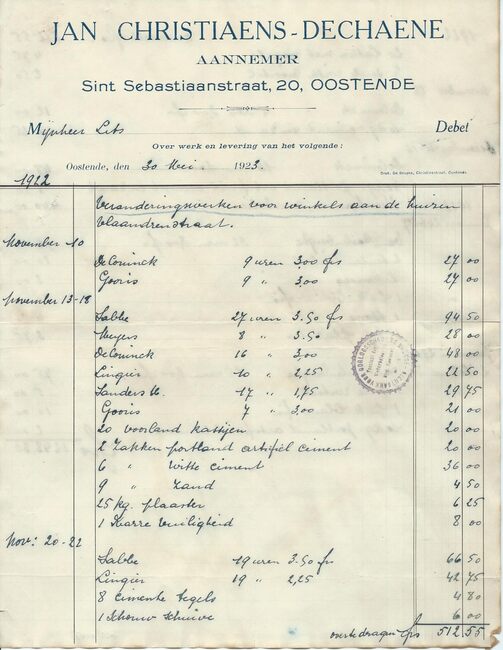 JAN CHRISTIAENS-DECHAENE
AANNEMER
Sint Sebastiaanstraat, 20, OOSTENDE
Mijnheer Lets Debet
Over werk en levering van het volgende:
Oostende, den 30 Mei. 1923.
Druk. De Gruyne, Christinastraat, Oostende
1922
Veranderingswerken voor winkels aan de huizen
Vlaandrenstraat.
November 10
DeConinck 9 uren 3.00 frs 27 00
Gooris 9 " 3,00 27 00
November 13-18
Sabbe 27 uren 3.50 frs 94 50
Meyers 8 " 3.50 28 00
DeConinck 16 " 3,00 48 00
Lingier 10 " 2,25 22 50
Sanders 17 " 1,75 29 75
Gooris 7 " 3,00 21 00
20 voorland kastijen 20 00
2 Zakken portland artifiel ciment 20 00
6 " Witte ciment 36 00
9 " Zand 4 50
25 kg. plaaster 6 25
1 Karre vuiligheid 8 00
Nov: 20-22
Sabbe 19 uren 3.50 fr 66 50
Lingier 19 " 2,25 42 75
8 cimente tegels 4 80
1 Schouw Schuive 6 00
overtedragen frs 512 55